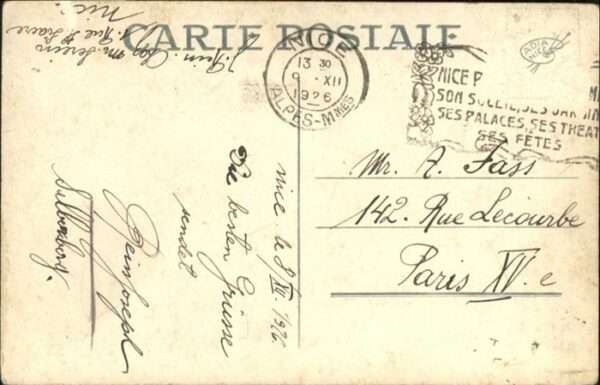 CARTE POSTALE
NICE
13 30
9 XII
1926
ALPES-MMES
NICE
SON SOLEIL, SES JARDIN
SES PALACES, SES THEAT
SES FÊTES
Mr. A. Fass
142. Rue Lecourbe
Paris XV.e
nice le 8 XII. 1926.
Die besten Grüsse
sendet
Silberberg.